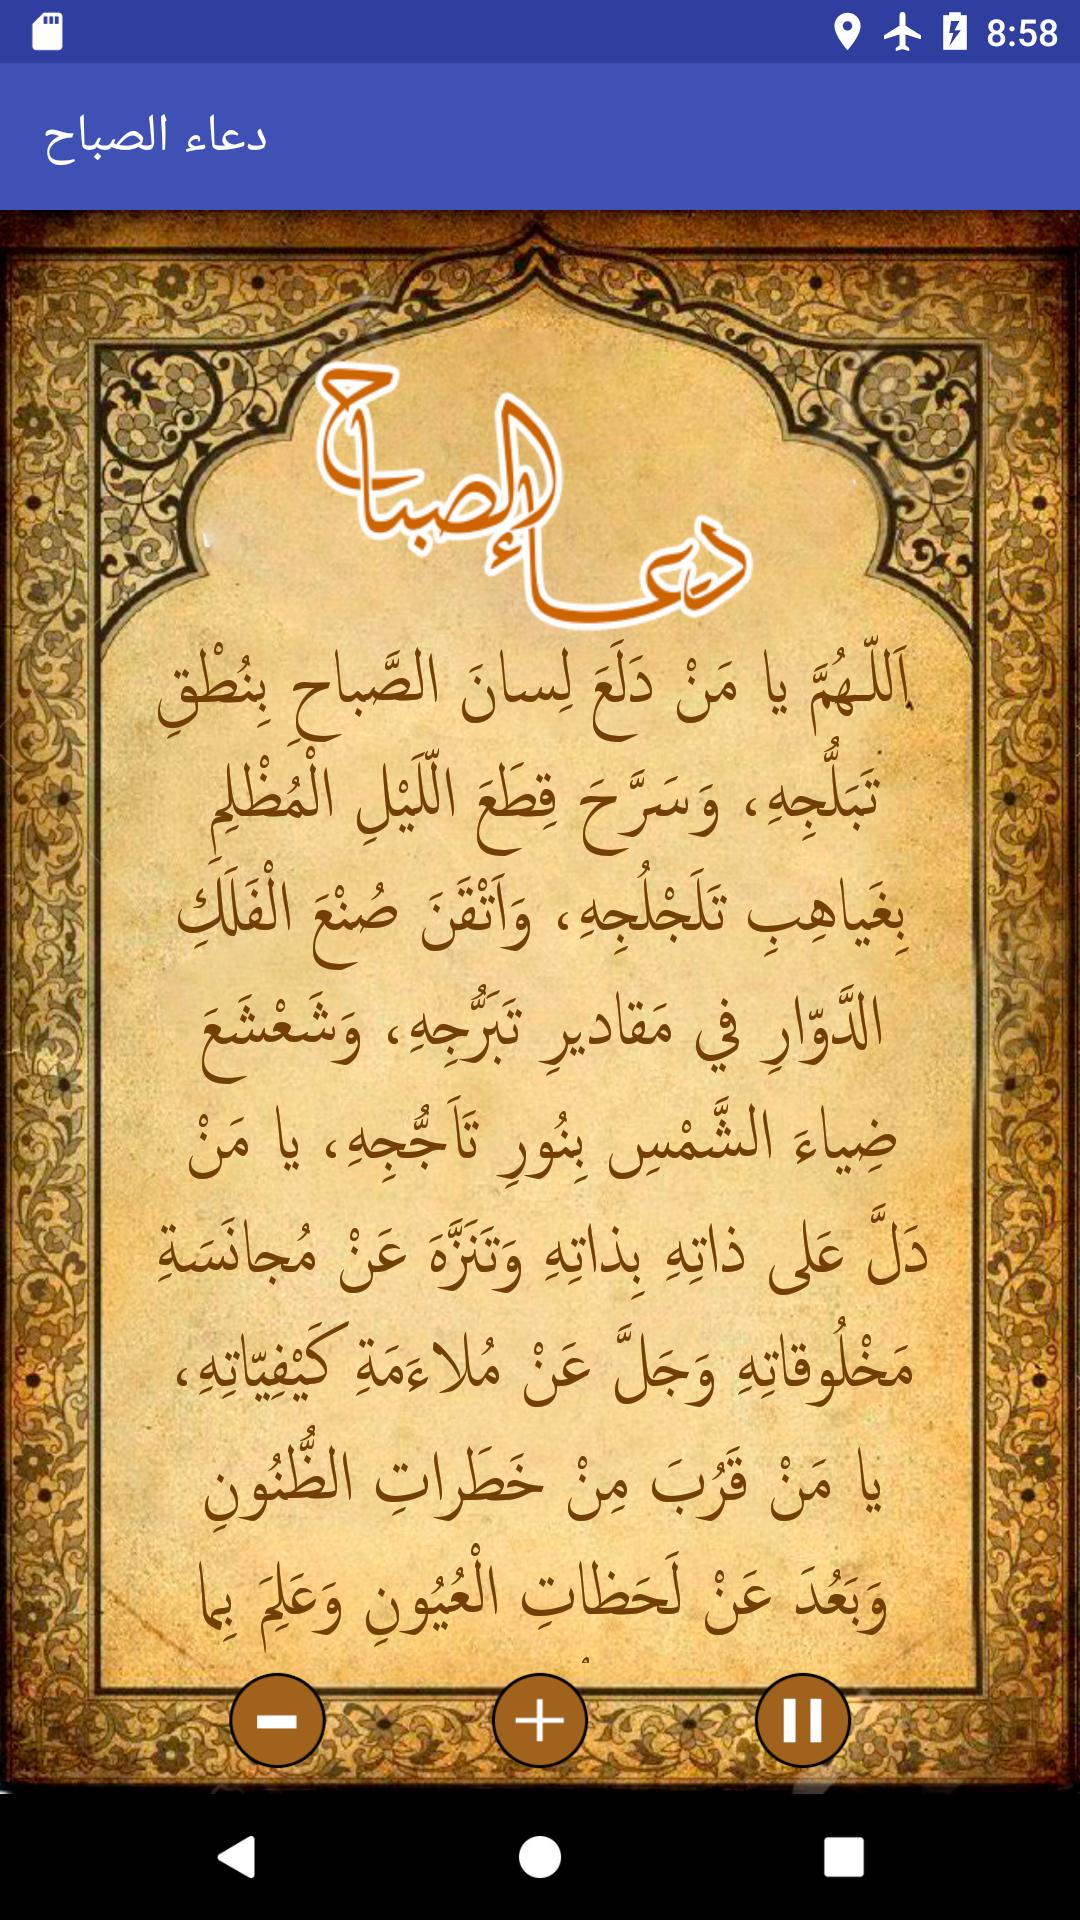 8:58
دعاء الصباح
دعاء الصباح
اَللّـهُمَّ يا مَنْ دَلَعَ لِسانَ الصَّباحِ بِنُطْقِ
تَبَلُّجِهِ، وَسَرَّحَ قِطَعَ الّلَيْلِ الْمُظْلِمِ
بِغَياهِبِ تَلَجْلُجِهِ، وَاَتْقَنَ صُنْعَ الْفَلَكِ
الدَّوّارِ في مَقاديرِ تَبَرُّجِهِ، وَشَعْشَعَ
ضِياءَ الشَّمْسِ بِنُورِ تَاَجُّجِهِ، يا مَنْ
دَلَّ عَلى ذاتِهِ بِذاتِهِ وَتَنَزَّهَ عَنْ مُجانَسَةِ
مَخْلُوقاتِهِ وَجَلَّ عَنْ مُلاءَمَةِ كَيْفِيّاتِهِ،
يا مَنْ قَرُبَ مِنْ خَطَراتِ الظُّنُونِ
وَبَعُدَ عَنْ لَحَظاتِ الْعُيُونِ وَعَلِمَ بِما